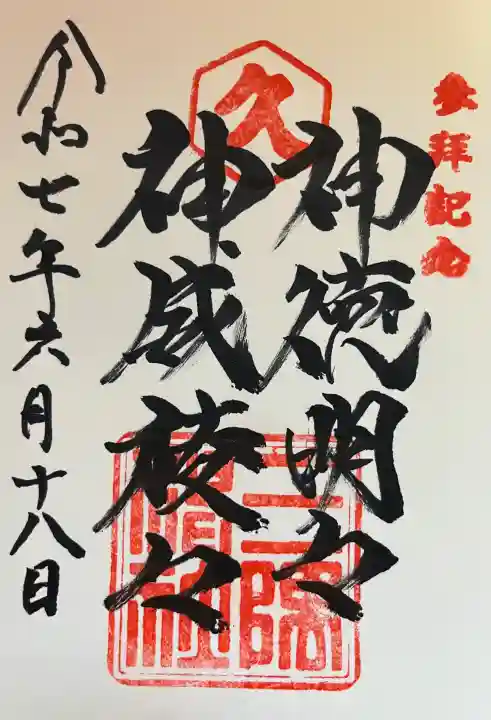 参拝記念
久
神徳明々
神威稜々
令和七年六月十八日